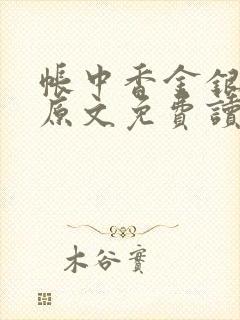 帳中香金銀
原文免費讀
木谷實